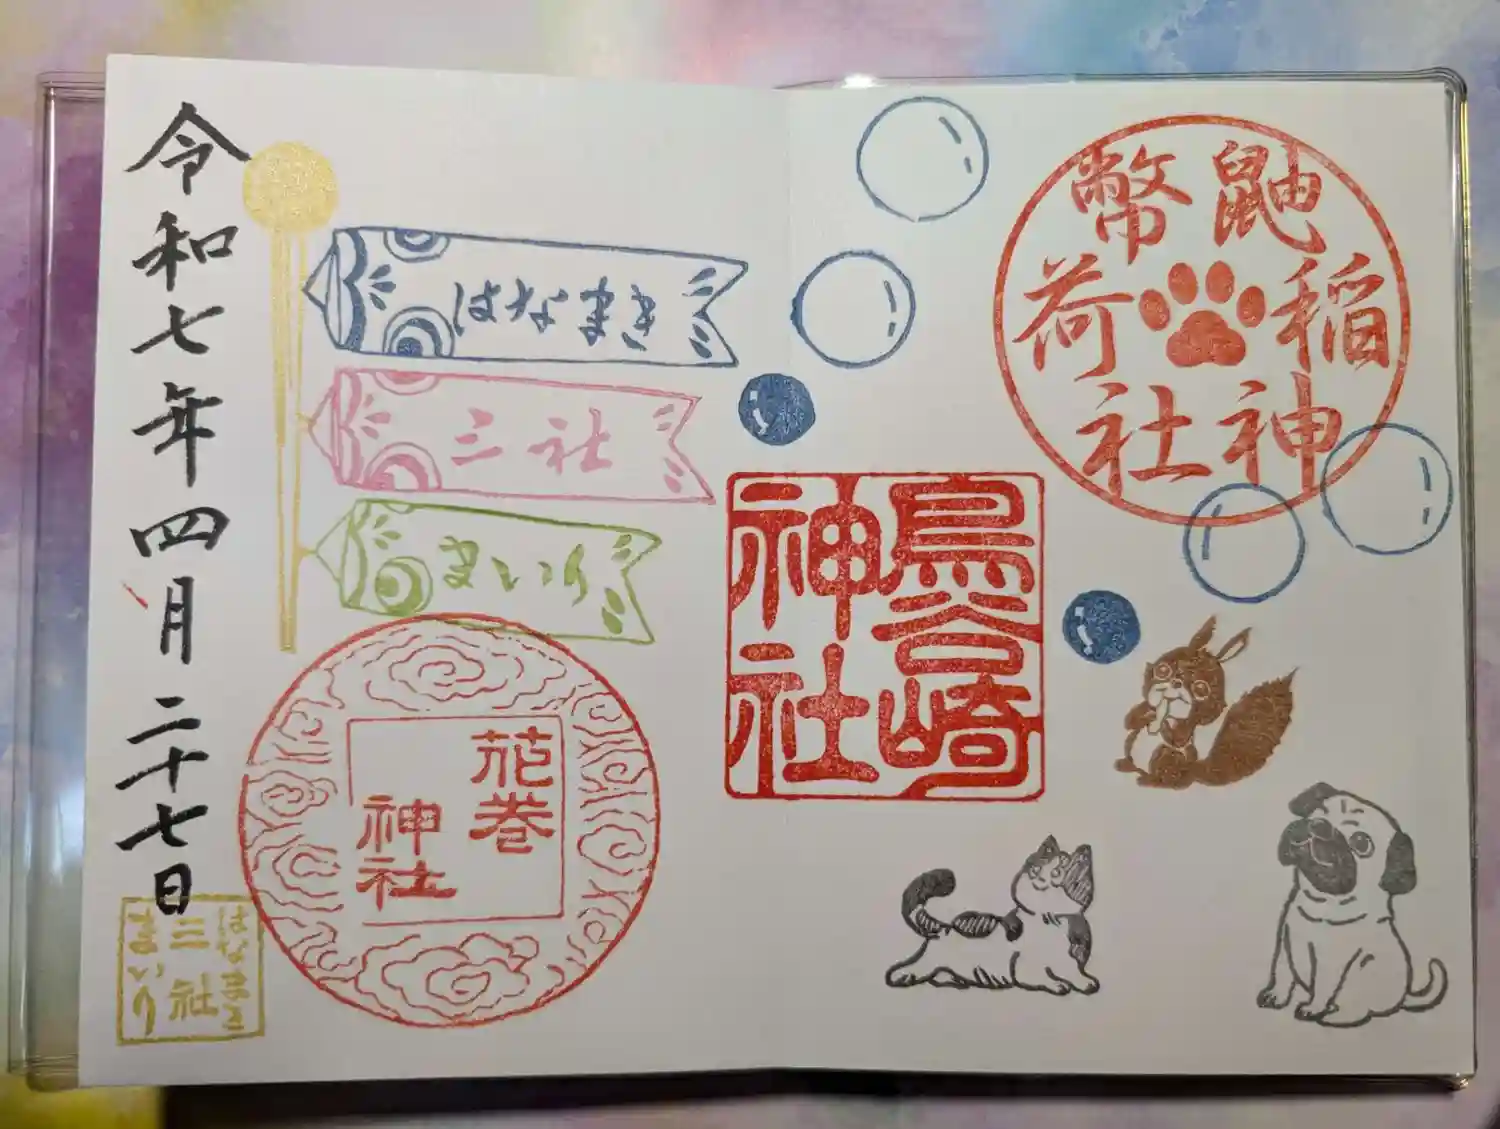 鼬幣
稲荷
神社
鳥谷崎
神社
はなまき
三社
まいり
花巻
神社
令和七年四月二十七日
はなまき
三社
まいり